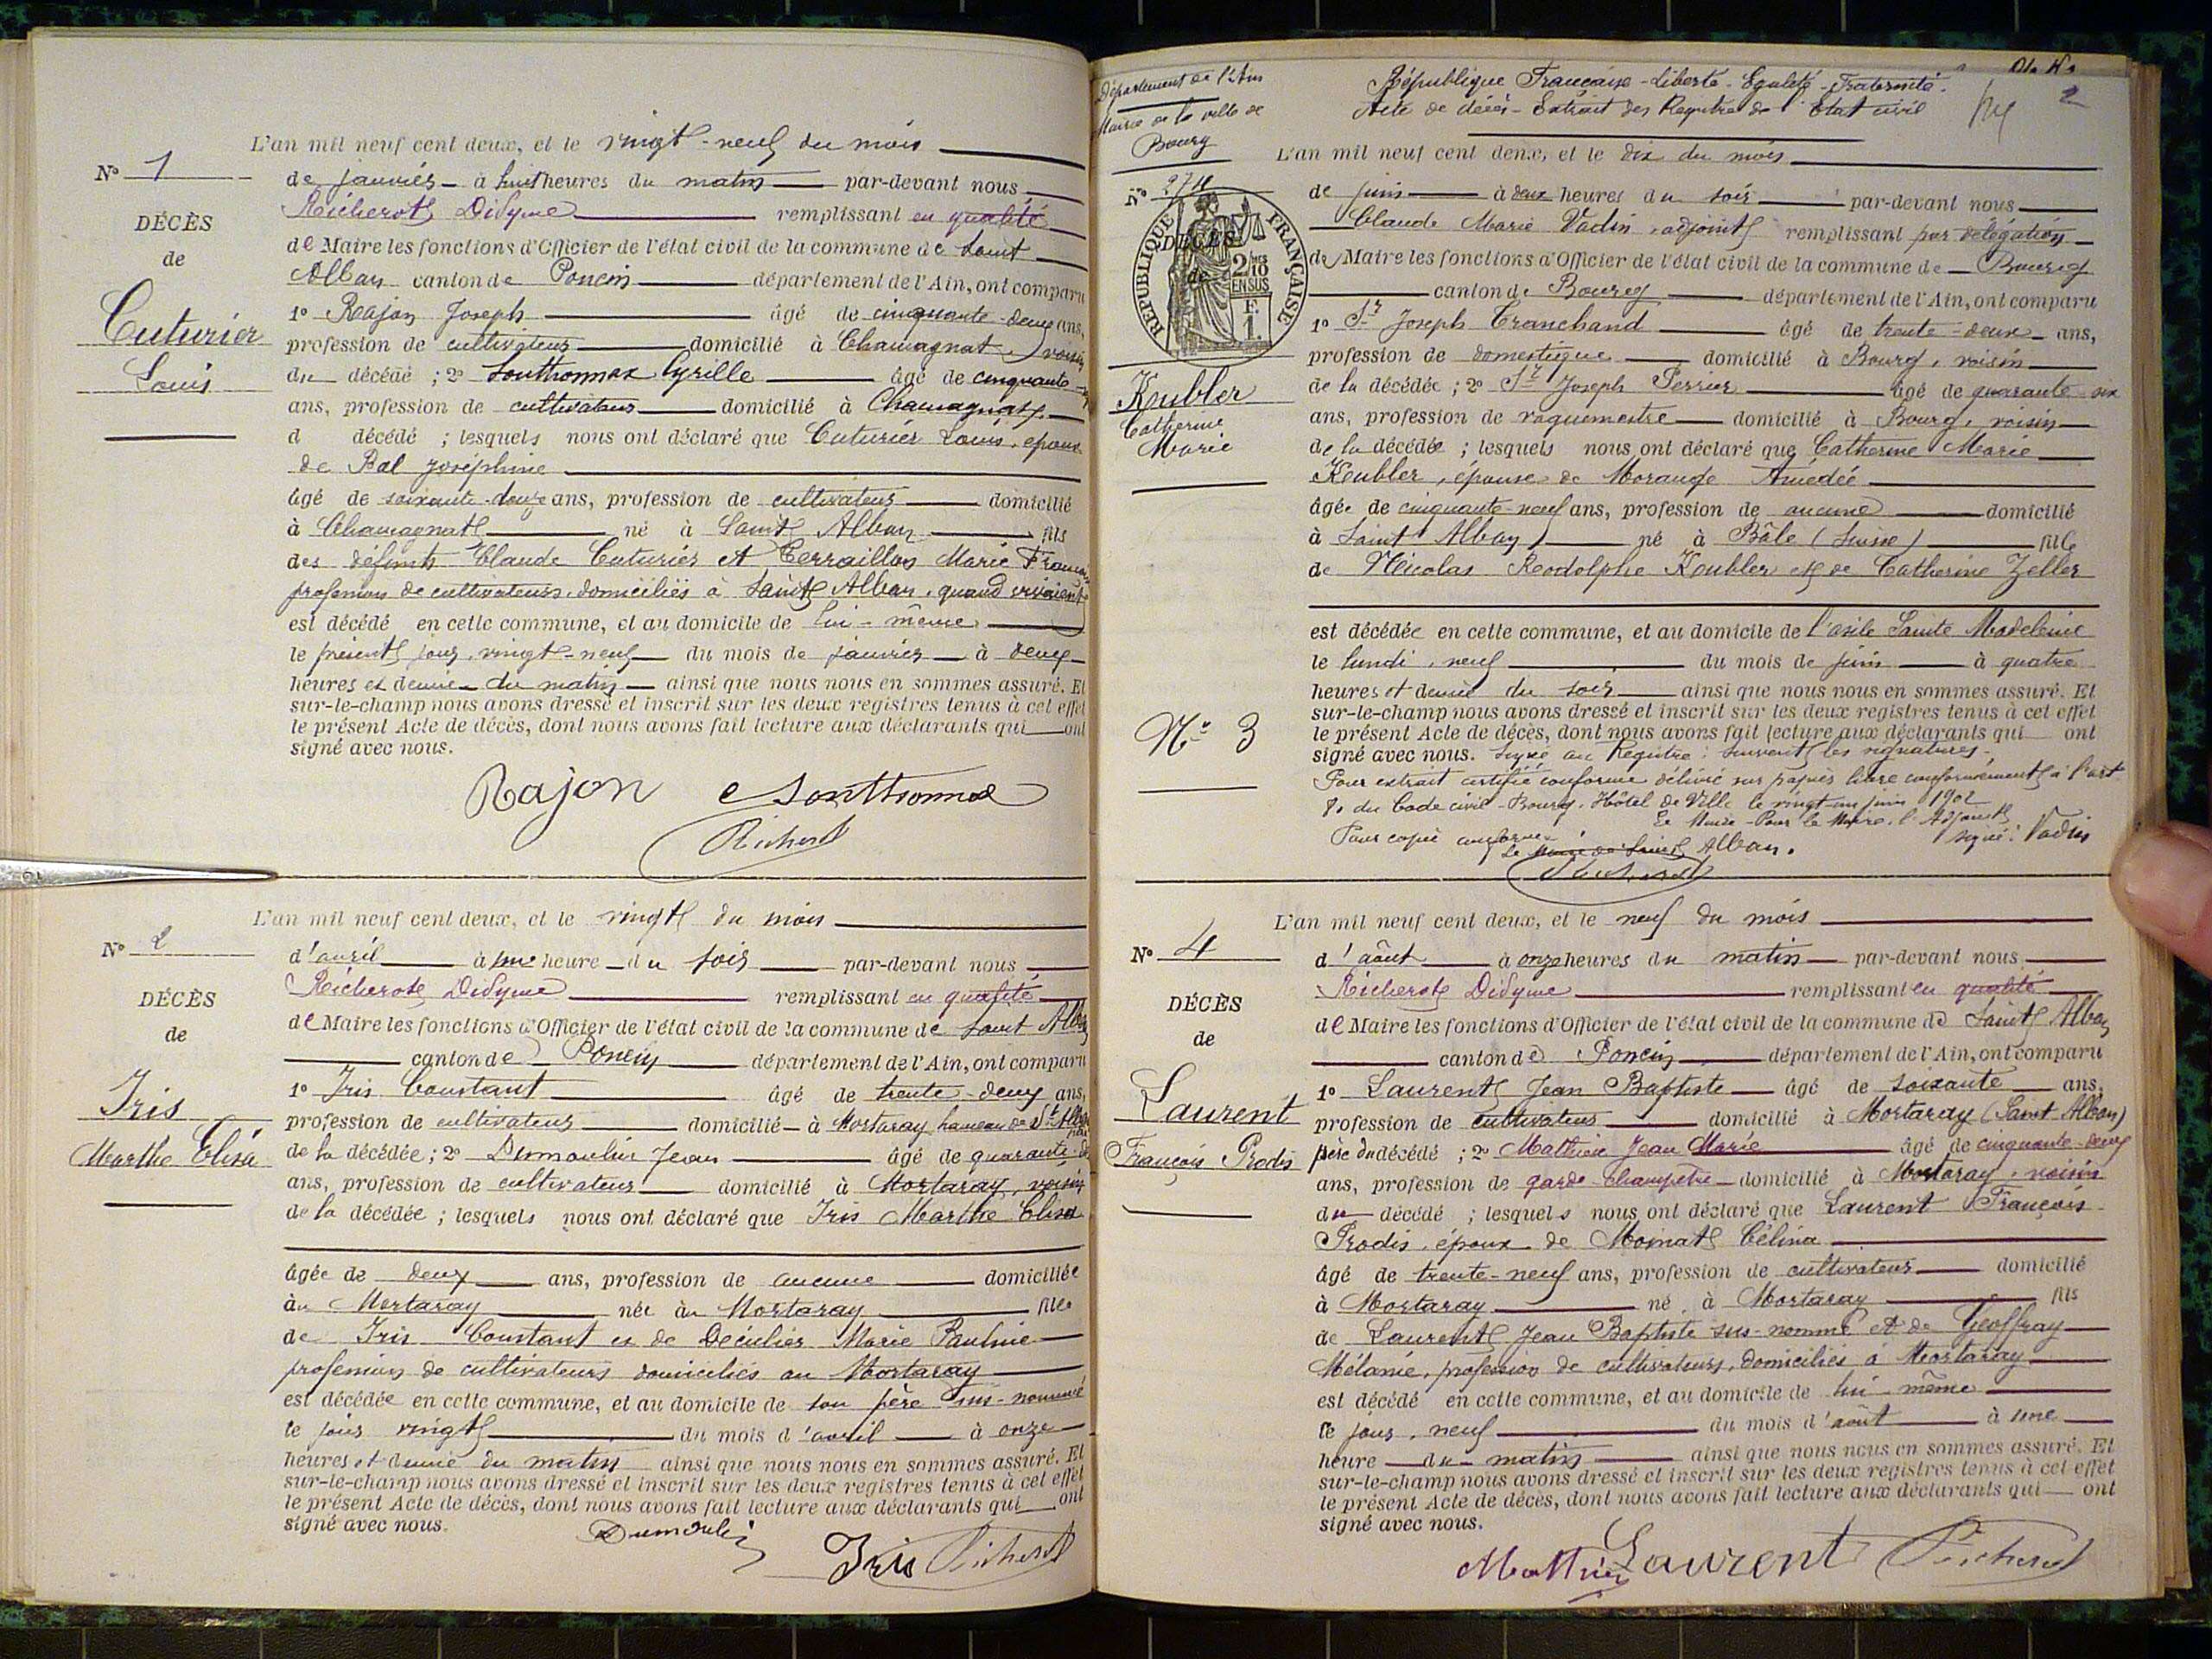 L'an mil neuf cent deux, et le vingt-neuf du mois
N° 1
de janvier à huit heures du matin par-devant nous
Richerot Didyme remplissant en qualité
DÉCÈS
de Maire les fonctions d'Officier de l'état civil de la commune de Saint
de
Alban canton de Poncin département de l'Ain, ont comparu
1° Rajon Joseph âgé de cinquante-deux ans,
Cuturier
profession de cultivateur domicilié à Chamagnat, voisin
Louis
du décédé ; 2° Southonnax Cyrille âgé de cinquante
ans, profession de cultivateur domicilié à Chamagnat
d décédé ; lesquels nous ont déclaré que Cuturier Louis, époux
de Bal Joséphine
âgé de soixante-douze ans, profession de cultivateur domicilié
à Chamagnat né à Saint Alban fils
des défunts Claude Cuturier et Terraillon Marie
profession de cultivateurs, domiciliés à Saint Alban, quand vivaient
est décédé en cette commune, et au domicile de lui-même
le présent jour, vingt-neuf du mois de janvier à deux
heures et demie du matin ainsi que nous nous en sommes assuré. Et
sur-le-champ nous avons dressé et inscrit sur les deux registres tenus à cet effet
le présent Acte de décès, dont nous avons fait lecture aux déclarants qui ont
signé avec nous.
Rajon Southonnax
Richerot
L'an mil neuf cent deux, et le vingt du mois
N° 2
d'avril à une heure du soir par-devant nous
Richerot Didyme remplissant en qualité
DÉCÈS
de Maire les fonctions d'Officier de l'état civil de la commune de Saint Alban
de
canton de Poncin département de l'Ain, ont comparu
1° Iris Constant âgé de trente-deux ans,
Iris
profession de cultivateur domicilié à Mortaray hameau de St Alban
Marthe Elisa
de la décédée ; 2° Dumoulin Jean âgé de quarante
ans, profession de cultivateur domicilié à Mortaray, voisin
de la décédée ; lesquels nous ont déclaré que Iris Marthe Elisa
âgée de deux ans, profession de aucune domiciliée
au Mortaray née au Mortaray fille
de Iris Constant et de Marie Pauline
profession de cultivateurs domiciliés au Mortaray
est décédée en cette commune, et au domicile de son père sus-nommé
le jour vingt du mois d'avril à onze
heures et demie du matin ainsi que nous nous en sommes assuré. Et
sur-le-champ nous avons dressé et inscrit sur les deux registres tenus à cet effet
le présent Acte de décès, dont nous avons fait lecture aux déclarants qui ont
signé avec nous.
Dumoulin Iris Richerot
Département de l'Ain
Mairie de la ville de
Bourg
République Française - Liberté - Egalité - Fraternité.
2
Acte de décès - Extrait des Registres de l'Etat civil
L'an mil neuf cent deux, et le dix du mois
N° 274
de juin à deux heures du soir par-devant nous
Claude Marie Vadin, adjoint remplissant par délégation
DÉCÈS
de
REPUBLIQUE FRANÇAISE
2/10
EN SUS
F.
1.
de Maire les fonctions d'Officier de l'état civil de la commune de Bourg
canton de Bourg département de l'Ain, ont comparu
1° Sr Joseph Tranchand âgé de trente-deux ans,
profession de domestique domicilié à Bourg, voisin
Keubler
Catherine
Marie
de la décédée ; 2° Sr Joseph Perrier âgé de quarante six
ans, profession de vaguemestre domicilié à Bourg, voisin
de la décédée ; lesquels nous ont déclaré que Catherine Marie
Keubler, épouse de Morange Amédée
âgée de cinquante-neuf ans, profession de aucune domicilié
à Saint Alban né à Bâle (Suisse) fille
de Nicolas Rodolphe Keubler et de Catherine Zeller
est décédée en cette commune, et au domicile de l'asile Sainte Madeleine
le lundi, neuf du mois de juin à quatre
heures et demie du soir ainsi que nous nous en sommes assuré. Et
sur-le-champ nous avons dressé et inscrit sur les deux registres tenus à cet effet
N° 3
le présent Acte de décès, dont nous avons fait lecture aux déclarants qui ont
signé avec nous. Signé au Registre : suivent les signatures.
Pour extrait certifié conforme délivré sur papier libre conformément à l'art
80 du Code civil - Bourg, Hôtel de Ville le vingt-un juin 1902
Le Maire - Pour le Maire, l'Adjoint
signé : Vadin
Pour copie conforme
Le Maire de Saint Alban.
Richerot
L'an mil neuf cent deux, et le neuf du mois
N° 4
d'août à onze heures du matin par-devant nous
Richerot Didyme remplissant en qualité
DÉCÈS
de Maire les fonctions d'Officier de l'état civil de la commune de Saint Alban
de
canton de Poncin département de l'Ain, ont comparu
1° Laurent Jean Baptiste âgé de soixante ans,
Laurent
profession de cultivateur domicilié à Mortaray (Saint Alban)
François Prodis
père du décédé ; 2° Mathieu Jean Marie âgé de cinquante-deux
ans, profession de garde champetre domicilié à Mortaray, voisin
du décédé ; lesquels nous ont déclaré que Laurent François
Prodis, époux de Moinat Célina
âgé de trente-neuf ans, profession de cultivateur domicilié
à Mortaray né à Mortaray fils
de Laurent Jean Baptiste sus-nommé et de Geoffray
Mélanie, profession de cultivateurs, domiciliés à Mortaray
est décédé en cette commune, et au domicile de lui-même
le jour, neuf du mois d'août à une
heure du matin ainsi que nous nous en sommes assuré. Et
sur-le-champ nous avons dressé et inscrit sur les deux registres tenus à cet effet
le présent Acte de décès, dont nous avons fait lecture aux déclarants qui ont
signé avec nous.
Mathieu Laurent Richerot